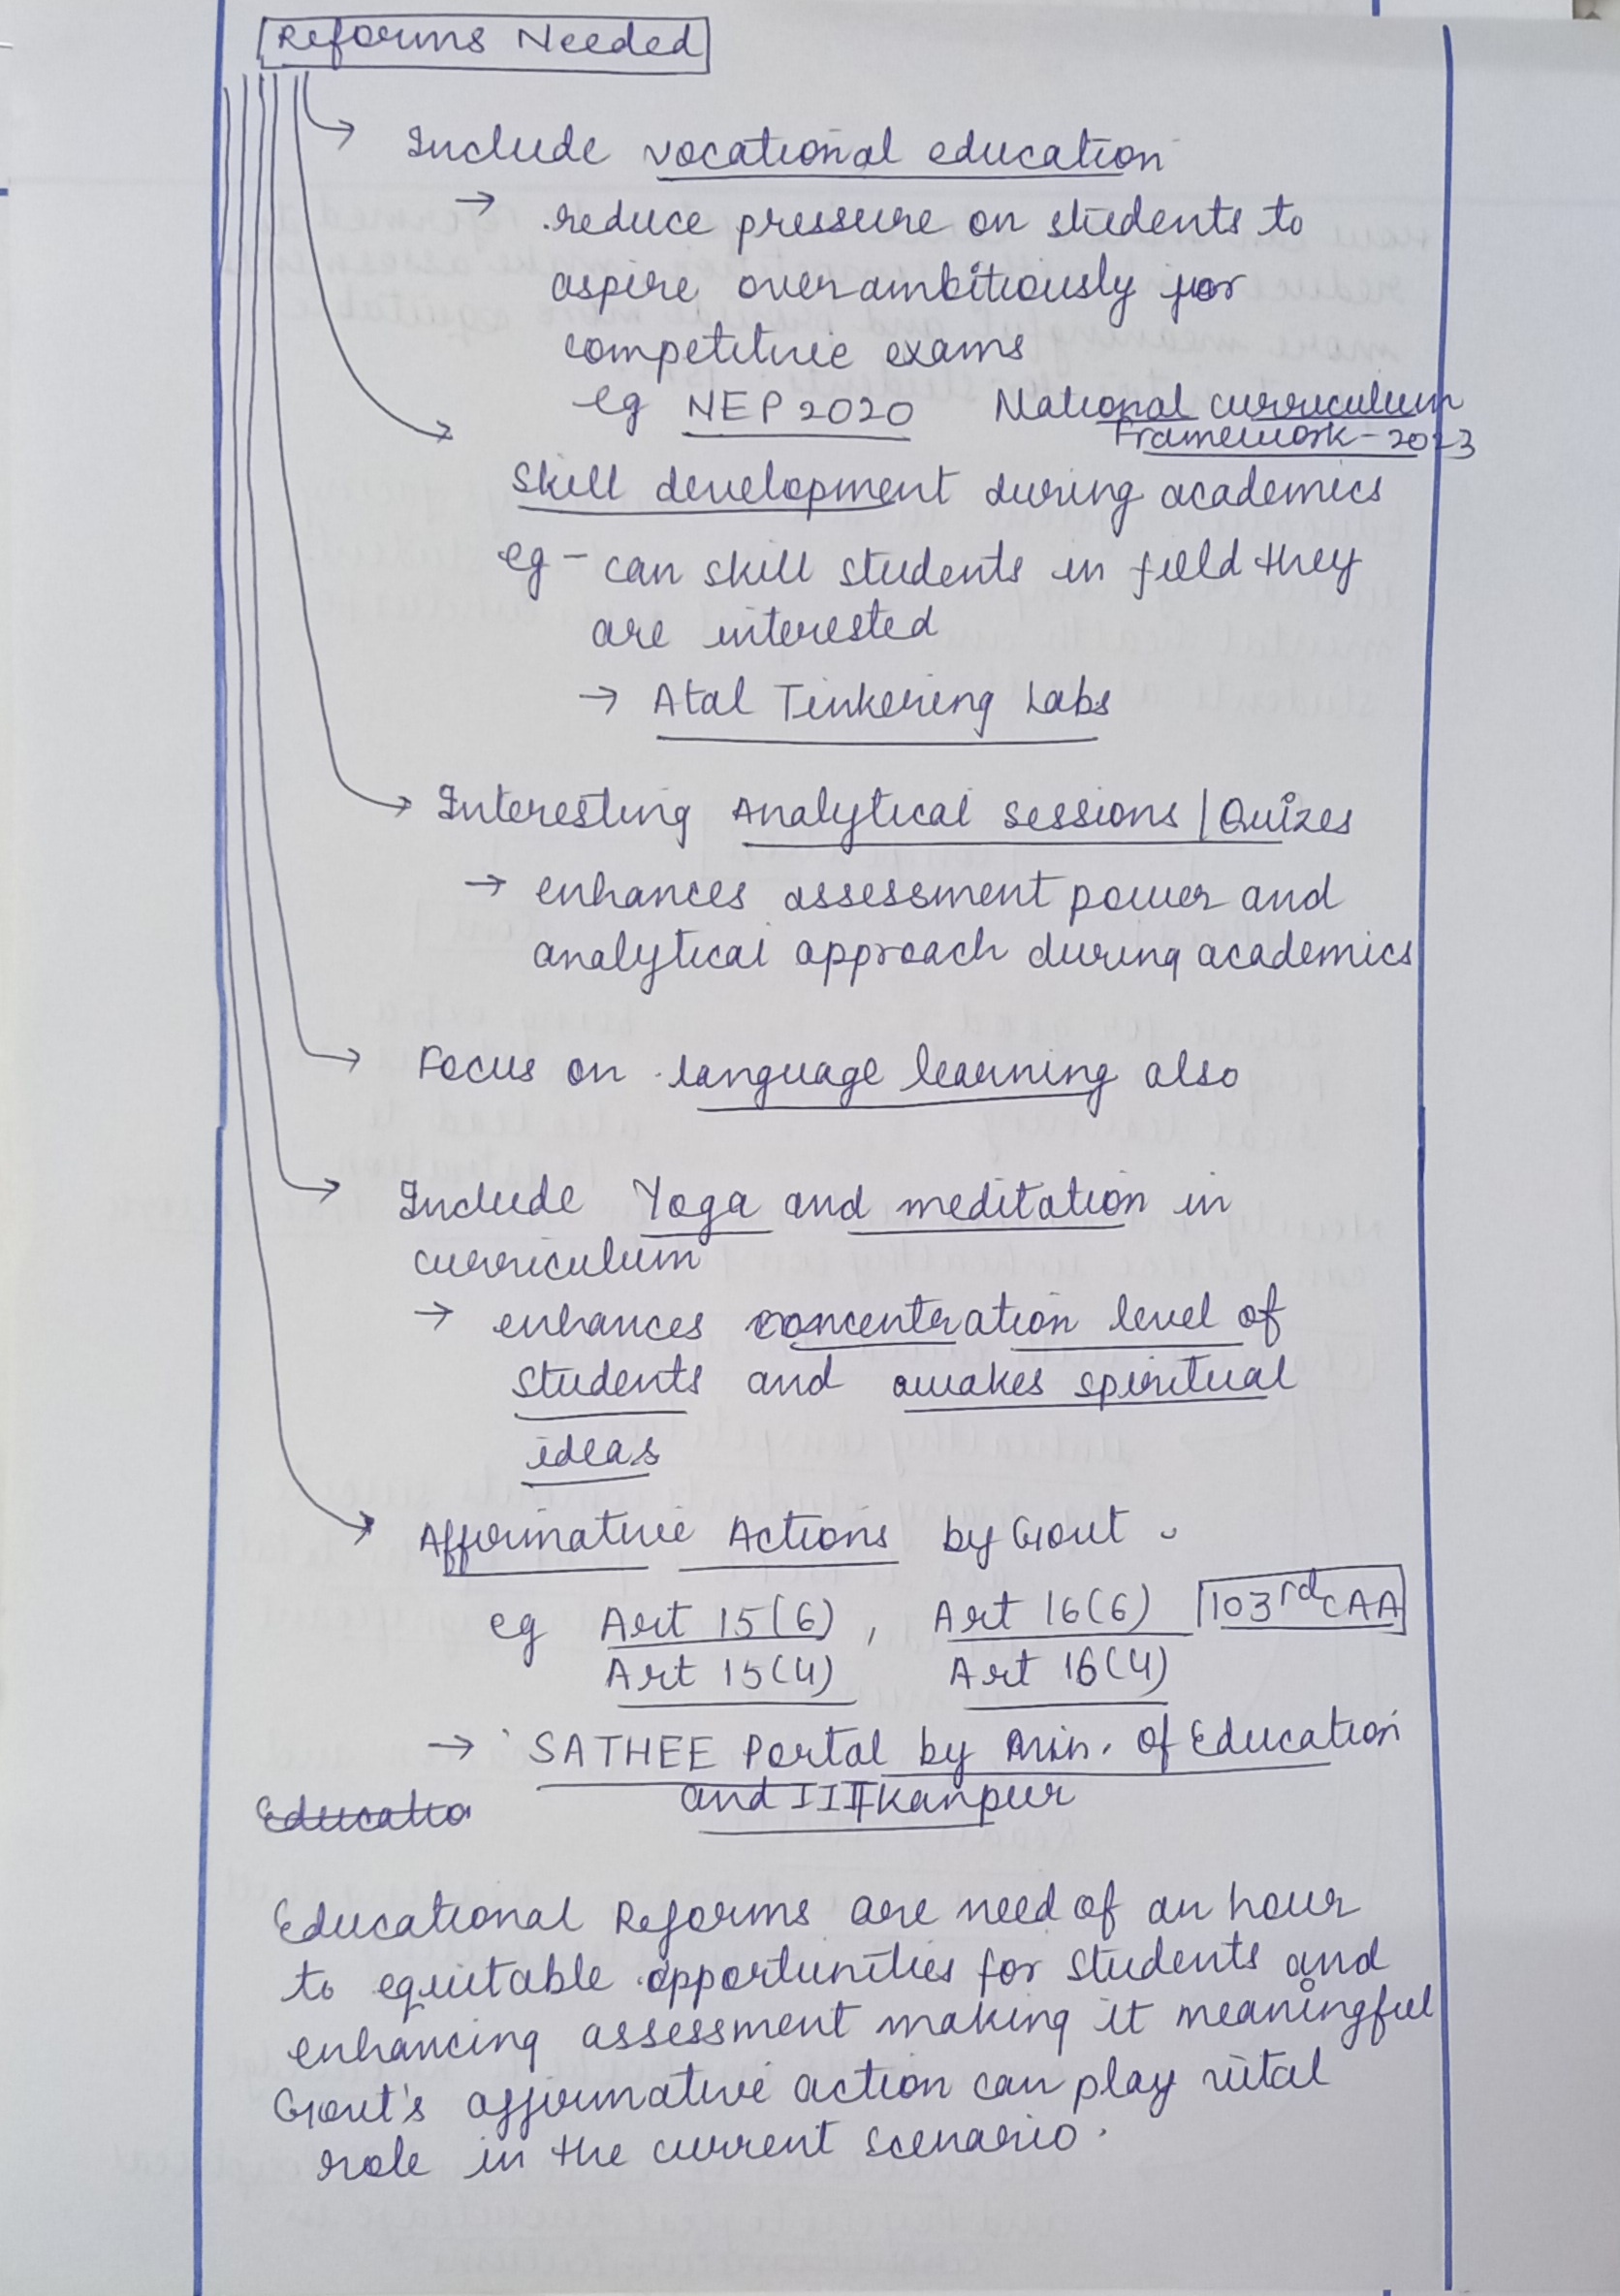 Reforms Needed
→ Include vocational education
→ reduce pressure on students to
aspire overambitiously for
competitive exams
eg NEP 2020 National curriculum
Framework-2023
→ Skill development during academics
eg - can skill students in field they
are interested
→ Atal Tinkering Labs
→ Interesting Analytical sessions / Quizes
→ enhances assessment power and
analytical approach during academics
→ Focus on language learning also
→ Include Yoga and meditation in
curriculum
→ enhances concentration level of
students and awakes spiritual
ideas
→ Affirmative Actions by Govt
eg Art 15(6), Art 16(6) 103rd CAA
Art 15(4) Art 16(4)
→ SATHEE Portal by Min. of Education
and IIT Kanpur
Educatio
Educational Reforms are need of an hour
to equitable opportunities for students and
enhancing assessment making it meaningful
Govt's affirmative action can play vital
role in the current scenario.